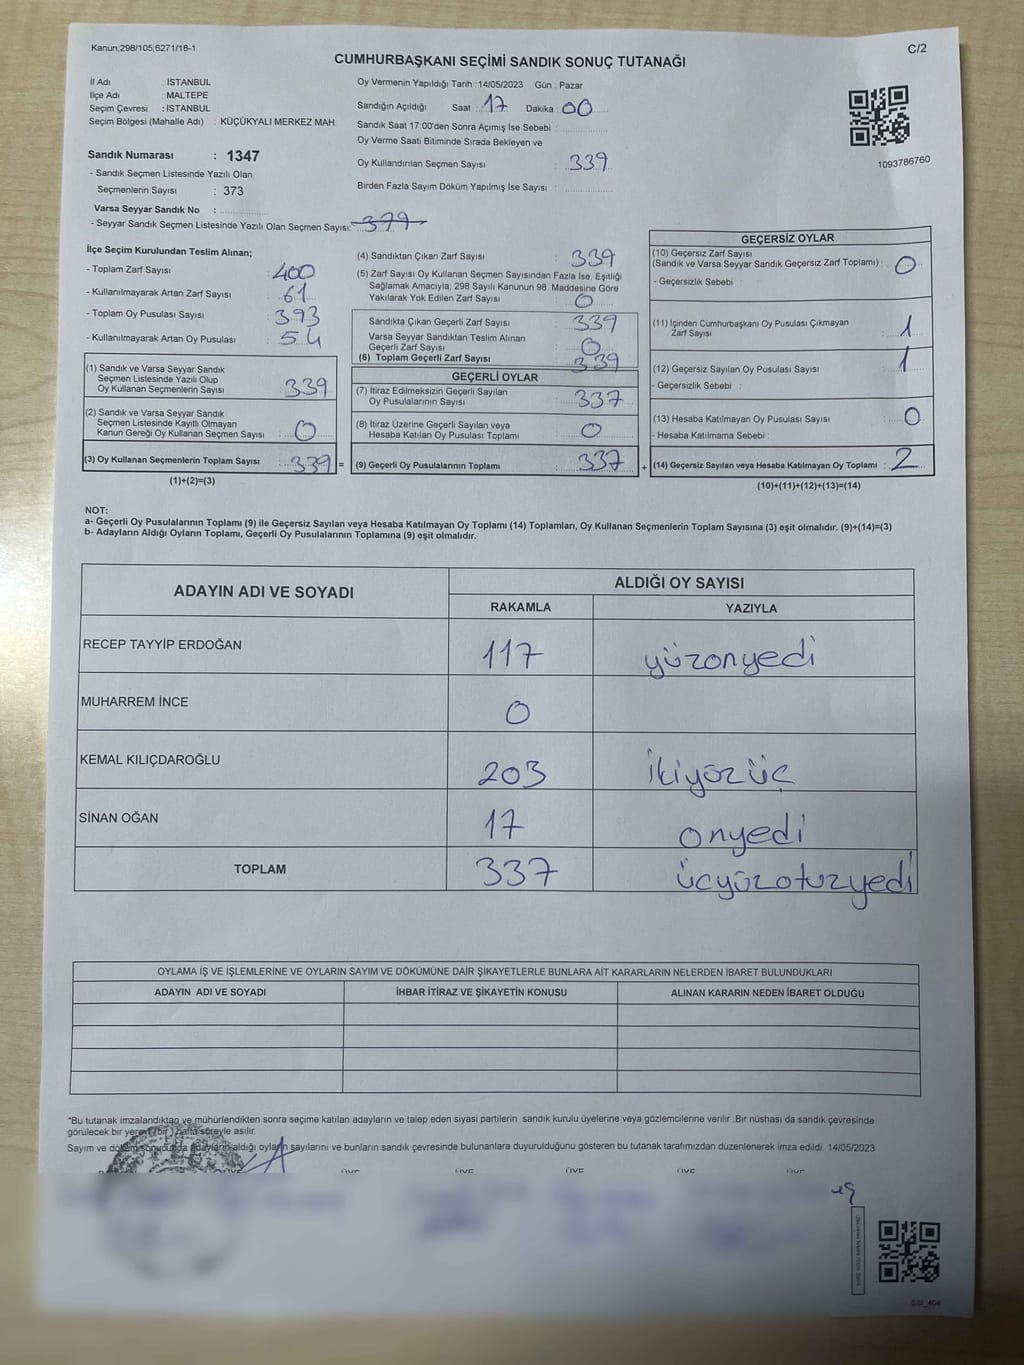 Kanun;298/105,6271/18-1
C/2
CUMHURBAŞKANI SEÇİMİ SANDIK SONUÇ TUTANAĞI
İl Adı : İSTANBUL
İlçe Adı : MALTEPE
Seçim Çevresi : İSTANBUL
Seçim Bölgesi (Mahalle Adı) : KÜÇÜKYALI MERKEZ MAH.
Sandık Numarası : 1347
- Sandık Seçmen Listesinde Yazılı Olan
Seçmenlerin Sayısı : 373
Varsa Seyyar Sandık No :
- Seyyar Sandık Seçmen Listesinde Yazılı Olan Seçmen Sayısı: 379
Oy Vermenin Yapıldığı Tarih : 14/05/2023 Gün : Pazar
Sandığın Açıldığı Saat : 17 Dakika : 00
Sandık Saat 17:00'den Sonra Açımış İse Sebebi :
Oy Verme Saati Bitiminde Sırada Bekleyen ve
Oy Kullandırılan Seçmen Sayısı : 339
Birden Fazla Sayım Döküm Yapılmış İse Sayısı :
1093786760
İlçe Seçim Kurulundan Teslim Alınan;
- Toplam Zarf Sayısı : 400
- Kullanılmayarak Artan Zarf Sayısı : 61
- Toplam Oy Pusulası Sayısı : 393
- Kullanılmayarak Artan Oy Pusulası : 54
(1) Sandık ve Varsa Seyyar Sandık
Seçmen Listesinde Yazılı Olup
Oy Kullanan Seçmenlerin Sayısı : 339
(2) Sandık ve Varsa Seyyar Sandık
Seçmen Listesinde Kayıtlı Olmayan
Kanun Gereği Oy Kullanan Seçmen Sayısı : 0
(3) Oy Kullanan Seçmenlerin Toplam Sayısı : 339 =
(1)+(2)=(3)
(4) Sandıktan Çıkan Zarf Sayısı : 339
(5) Zarf Sayısı Oy Kullanan Seçmen Sayısından Fazla İse, Eşitliği
Sağlamak Amacıyla, 298 Sayılı Kanunun 98. Maddesine Göre
Yakılarak Yok Edilen Zarf Sayısı : 0
Sandıkta Çıkan Geçerli Zarf Sayısı : 339
Varsa Seyyar Sandıktan Teslim Alınan
Geçerli Zarf Sayısı : 0
(6) Toplam Geçerli Zarf Sayısı : 339
GEÇERLİ OYLAR
(7) İtiraz Edilmeksizin Geçerli Sayılan
Oy Pusulalarının Sayısı : 337
(8) İtiraz Üzerine Geçerli Sayılan veya
Hesaba Katılan Oy Pusulası Toplamı : 0
(9) Geçerli Oy Pusulalarının Toplamı : 337 +
GEÇERSİZ OYLAR
(10) Geçersiz Zarf Sayısı
(Sandık ve Varsa Seyyar Sandık Geçersiz Zarf Toplamı) : 0
- Geçersizlik Sebebi :
(11) İçinden Cumhurbaşkanı Oy Pusulası Çıkmayan
Zarf Sayısı : 1
(12) Geçersiz Sayılan Oy Pusulası Sayısı : 1
- Geçersizlik Sebebi :
(13) Hesaba Katılmayan Oy Pusulası Sayısı : 0
- Hesaba Katılmama Sebebi :
(14) Geçersiz Sayılan veya Hesaba Katılmayan Oy Toplamı : 2
(10)+(11)+(12)+(13)=(14)
NOT:
a- Geçerli Oy Pusulalarının Toplamı (9) ile Geçersiz Sayılan veya Hesaba Katılmayan Oy Toplamı (14) Toplamları, Oy Kullanan Seçmenlerin Toplam Sayısına (3) eşit olmalıdır. (9)+(14)=(3)
b- Adayların Aldığı Oyların Toplamı, Geçerli Oy Pusulalarının Toplamına (9) eşit olmalıdır.
ADAYIN ADI VE SOYADI ALDIĞI OY SAYISI
RAKAMLA YAZIYLA
RECEP TAYYİP ERDOĞAN 117 yüzonyedi
MUHARREM İNCE 0
KEMAL KILIÇDAROĞLU 203 ikiyüzüç
SİNAN OĞAN 17 onyedi
TOPLAM 337 üçyüzotuzyedi
OYLAMA İŞ VE İŞLEMLERİNE VE OYLARIN SAYIM VE DÖKÜMÜNE DAİR ŞİKAYETLERLE BUNLARA AİT KARARLARIN NELERDEN İBARET BULUNDUKLARI
ADAYIN ADI VE SOYADI İHBAR İTİRAZ VE ŞİKAYETİN KONUSU ALINAN KARARIN NEDEN İBARET OLDUĞU
*Bu tutanak imzalandıktan ve mühürlendikten sonra seçime katılan adayların ve talep eden siyasi partilerin sandık kurulu üyelerine veya gözlemcilerine verilir. Bir nüshası da sandık çevresinde
görülecek bir yere (bir) hafta süreyle asılır.
Sayım ve döküm sonucunda adayların aldığı oyların sayılarını ve bunların sandık çevresinde bulunanlara duyurulduğunu gösteren bu tutanak tarafımızdan düzenlenerek imza edildi. 14/05/2023
ÜYE ÜYE ÜYE ÜYE ÜYE